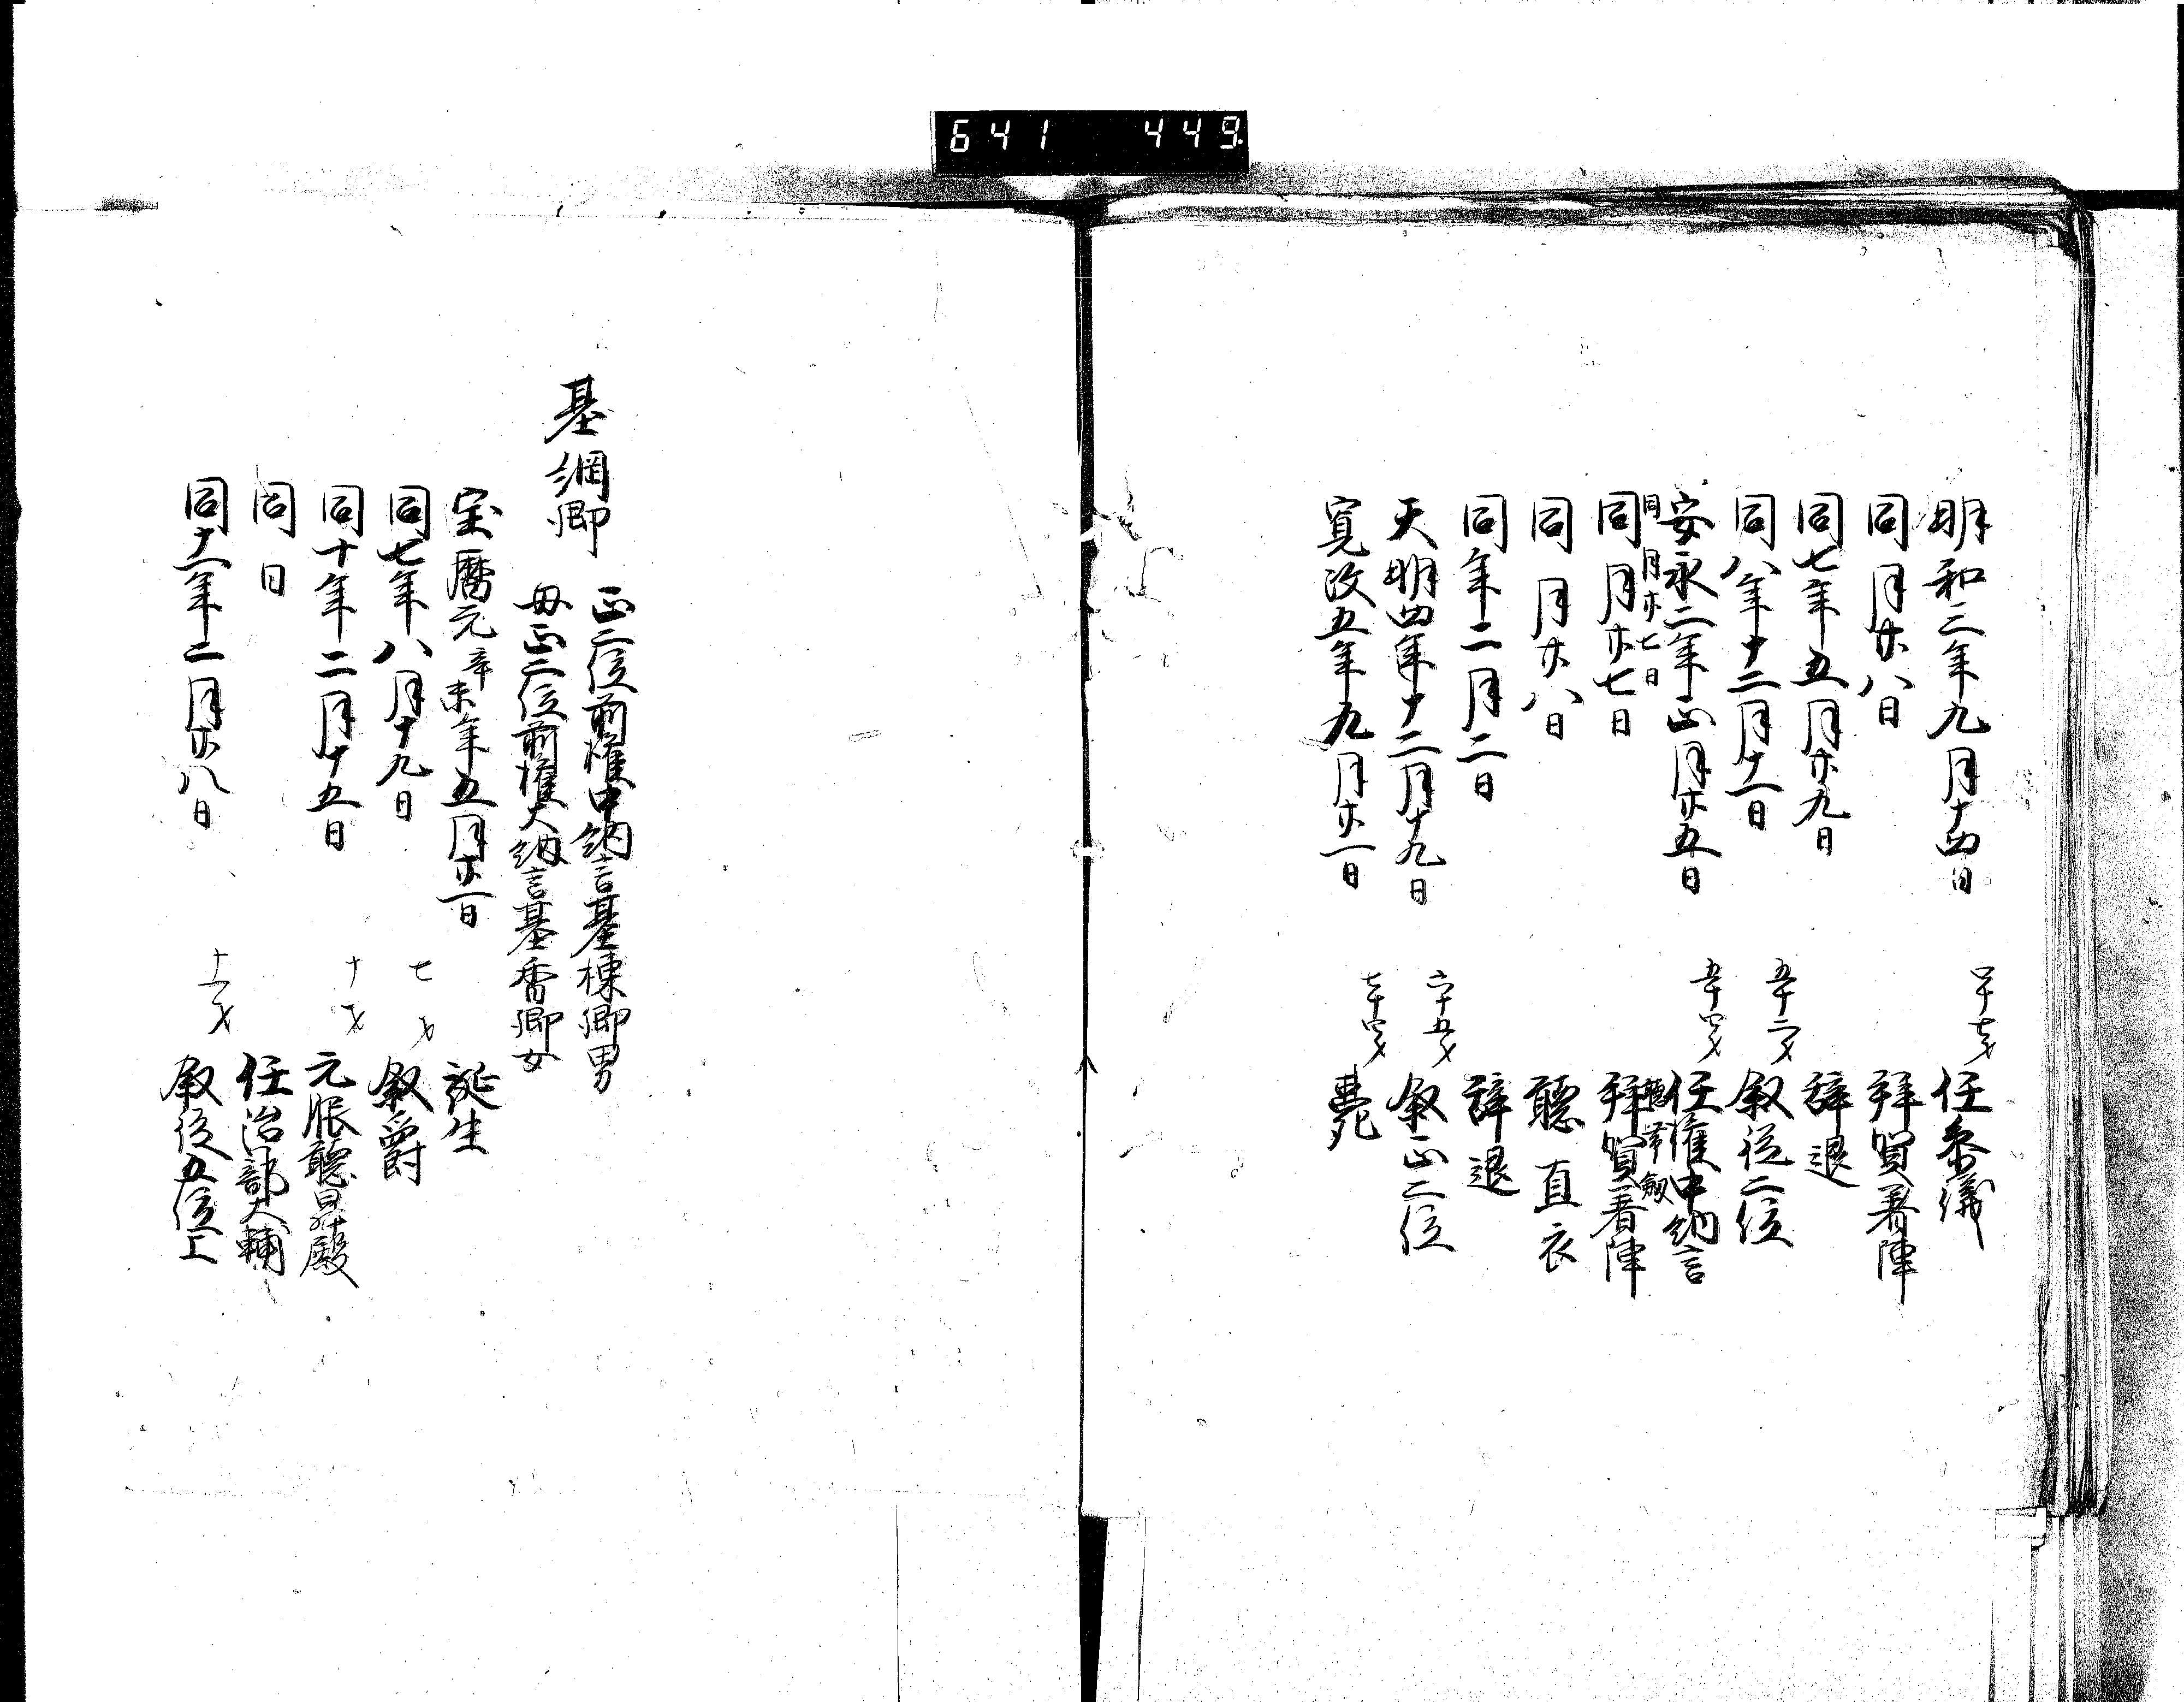 641 449
明和三年九月十四日 四十七才 任参議
同月廿八日 拝賀著陣
同七年五月廿九日 辞退
同八年十二月十一日 五十二才 叙従二位
安永二年正月廿五日 五十四才 任権中納言
同月廿七日 聴帯剱
同月廿七日 拝賀著陣
同月廿八日 聴直衣
同年二月二日 辞退
天明四年十二月十九日 六十五才 叙正二位
寛政五年九月廿一日 七十四才 薨
基綱卿 正二位前権中納言基棟卿男
母正二位前権大納言基香卿女
宝暦元辛未年五月廿一日 誕生
同七年八月十九日 七才 叙爵
同十年二月十五日 十才 元服聴昇殿
同日 任治部大輔
同十一年二月廿八日 十一才 叙従五位上